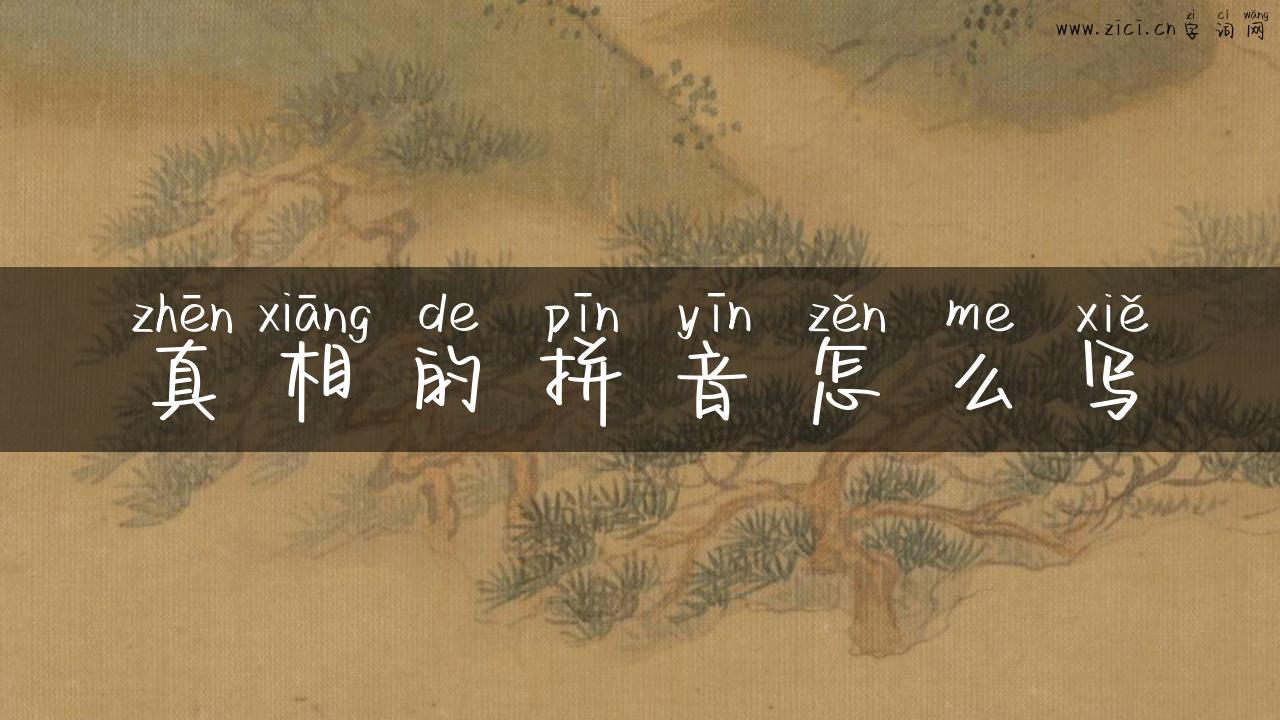 zì cí wǎng
www.zici.cn 字 词 网
zhēn xiāng de pīn yīn zěn me xiě
真 相 的 拼 音 怎 么 写